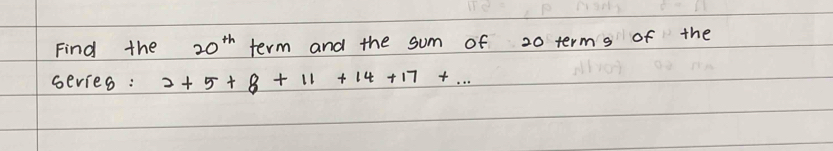 Find the 20th term and the sum of 20 terms of the
series : 2 + 5 + 8 + 11 + 14 + 17 + ...